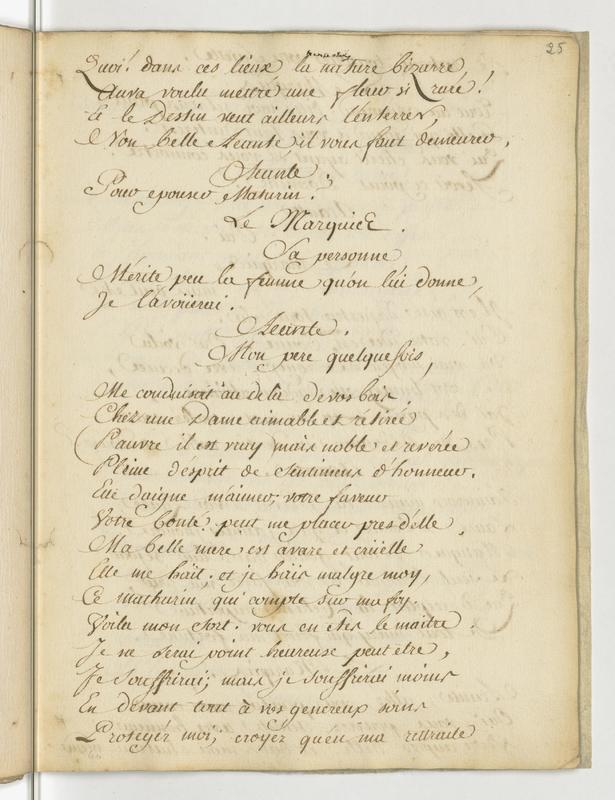 25
Quoi! dans ces lieux la nature bizarre,
Aura voulu mettre une fleur si rare!
Et le Destin veut ailleurs l'enterrer,
Non belle Acante, il vous faut demeurer,
Acante.
Pour epouser Maturin.
Le Marquis.
Sa personne
Mérite peu la femme qu'on lui donne,
Je l'avoüerai.
Acante.
Mon pere quelquefois,
Me conduisait au dela de vos bois,
Chez une Dame aimable et retirée
Pauvre il est vray, mais noble et reverée
Pleine d'esprit de sentimens d'honneur.
Elle daigne m'aimer; votre faveur
Votre bonté peut me placer pres d'elle,
Ma belle mere est avare et crüelle
Elle me häit. et je häis malgre moy,
Ce mathurin qui compte sur ma foy.
Voila mon sort. vous en etes le maitre.
Je ne serai point heureuse peut etre,
Je souffrirai; mais je souffrirai moins
En devant tout à vos genereux soins
Protegés moi; croyéz qu'en ma retraite